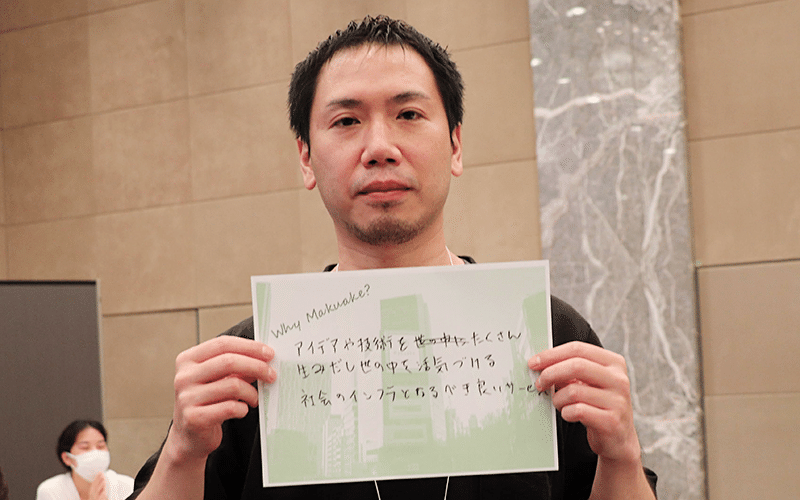 Why Makuake?
アイデアや技術を世の中にたくさん
生みだし世の中を活気づける
社会のインフラとなるべき良いサービス